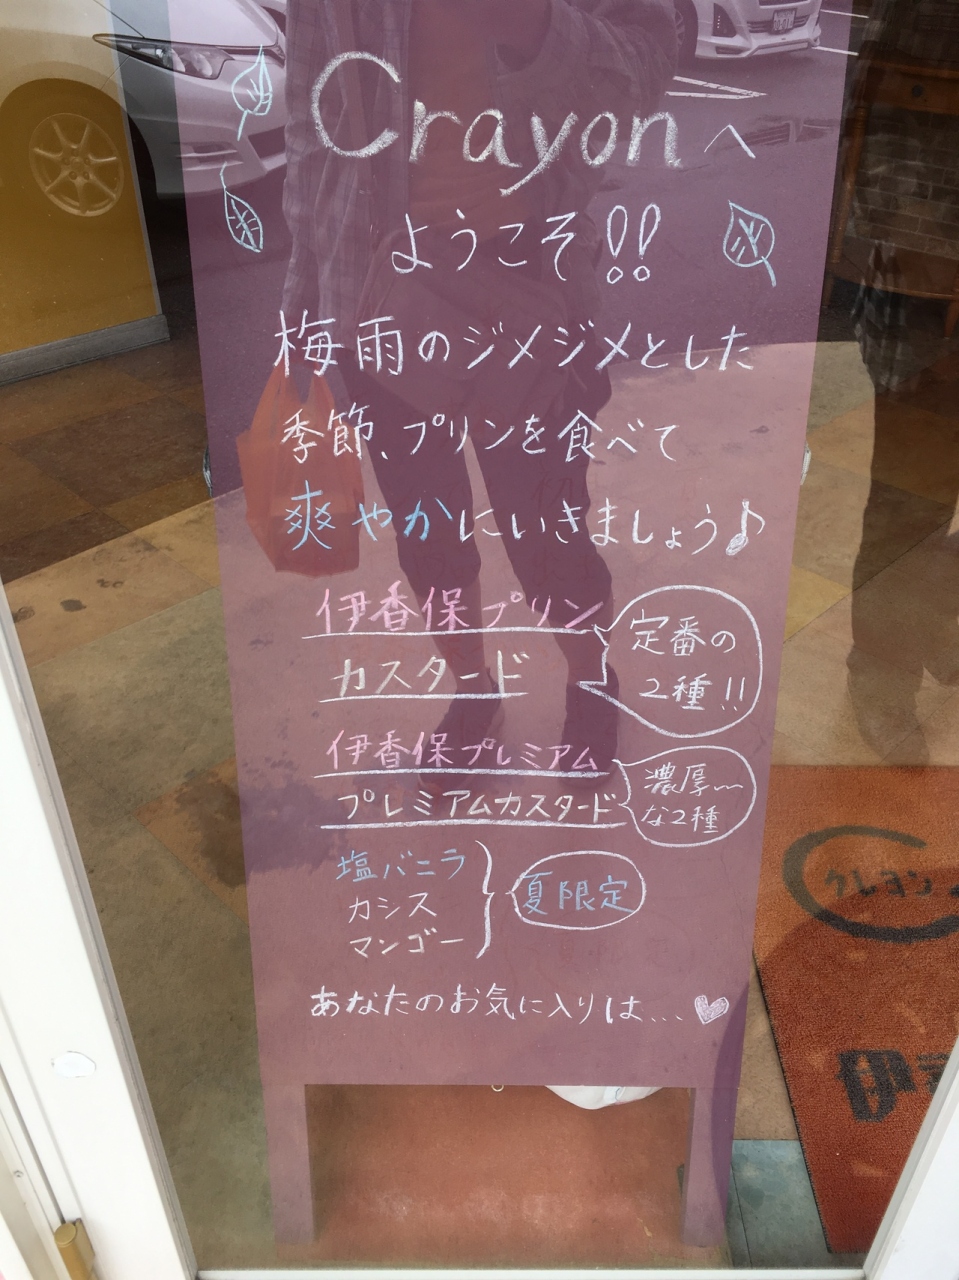 Crayonへ
ようこそ!!
梅雨のジメジメとした
季節、プリンを食べて
爽やかにいきましょう♪
伊香保プリン
カスタード
定番の
2種!!
伊香保プレミアム
プレミアムカスタード
濃厚〜
な2種
塩バニラ
カシス
マンゴー
夏限定
あなたのお気に入りは...♥
クレヨン
伊